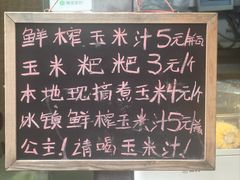 鲜榨玉米汁5元/瓶
玉米粑粑3元/个
本地现搞煮玉米4元/个
冰镇鲜榨玉米汁5元/瓶
公主!请喝玉米汁!